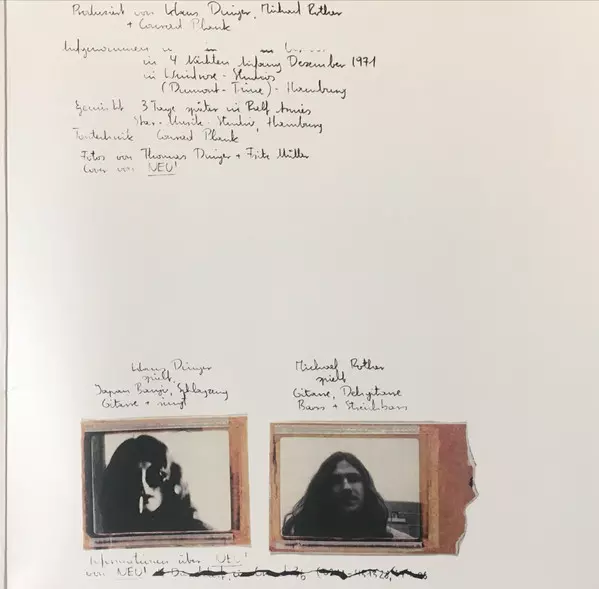 Produziert von Klaus Dinger, Michael Rother
+ Conrad Plank
Aufgenommen
in 4 Nächten Anfang Dezember 1971
in Windrose - Studios
(Dumont - Time) - Hamburg
Gemischt 3 Tage später in Ralf Arnies
Star - Musik - Studio, Hamburg
Tontechnik Conrad Plank
Fotos von Thomas Dinger + Fritz Müller
Cover von NEU!
Klaus Dinger
spielt
Japan Banjo, Schlagzeug
Gitarre + singt
Michael Rother
spielt
Gitarre, Dehgitarre
Bass + Streichbass
Informationen über NEU!
von NEU!